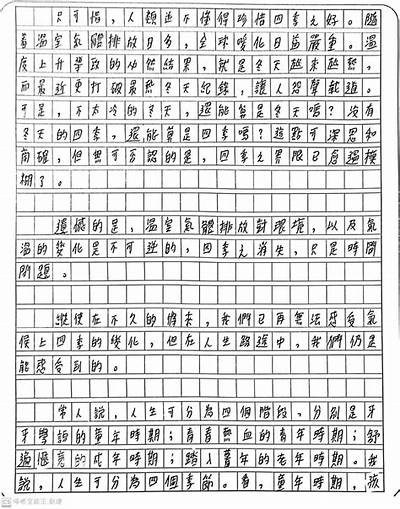 只可惜，人類並不懂得珍惜四季之好。隨
着溫室氣體排放日多，全球暖化日益嚴重。溫
度上升導致的必然結果，就是冬天越來越熱，
而最近更打破最熱冬天紀錄，讓人怨聲載道。
可是，不太冷的冬天，還能算是冬天嗎？沒有
冬天的四季，還能算是四季嗎？這點可深思和
商確，但無可否認的是，四季之界限已愈趨模
糊了。
遺憾的是，溫室氣體排放對環境，以及氣
溫的變化是不可逆的，四季之消失，只是時間
問題。
縱使在不久的將來，我們已再無法感受氣
候上四季的變化，但在人生路途中，我們仍是
能感受到的。
常人說，人生可分為四個階段，分別是牙
牙學語的童年時期；青春熱血的青年時期；舒
適愜意的成年時期；踏入暮年的老年時期。我
說，人生可分為四個季節。春，童年時期，孩